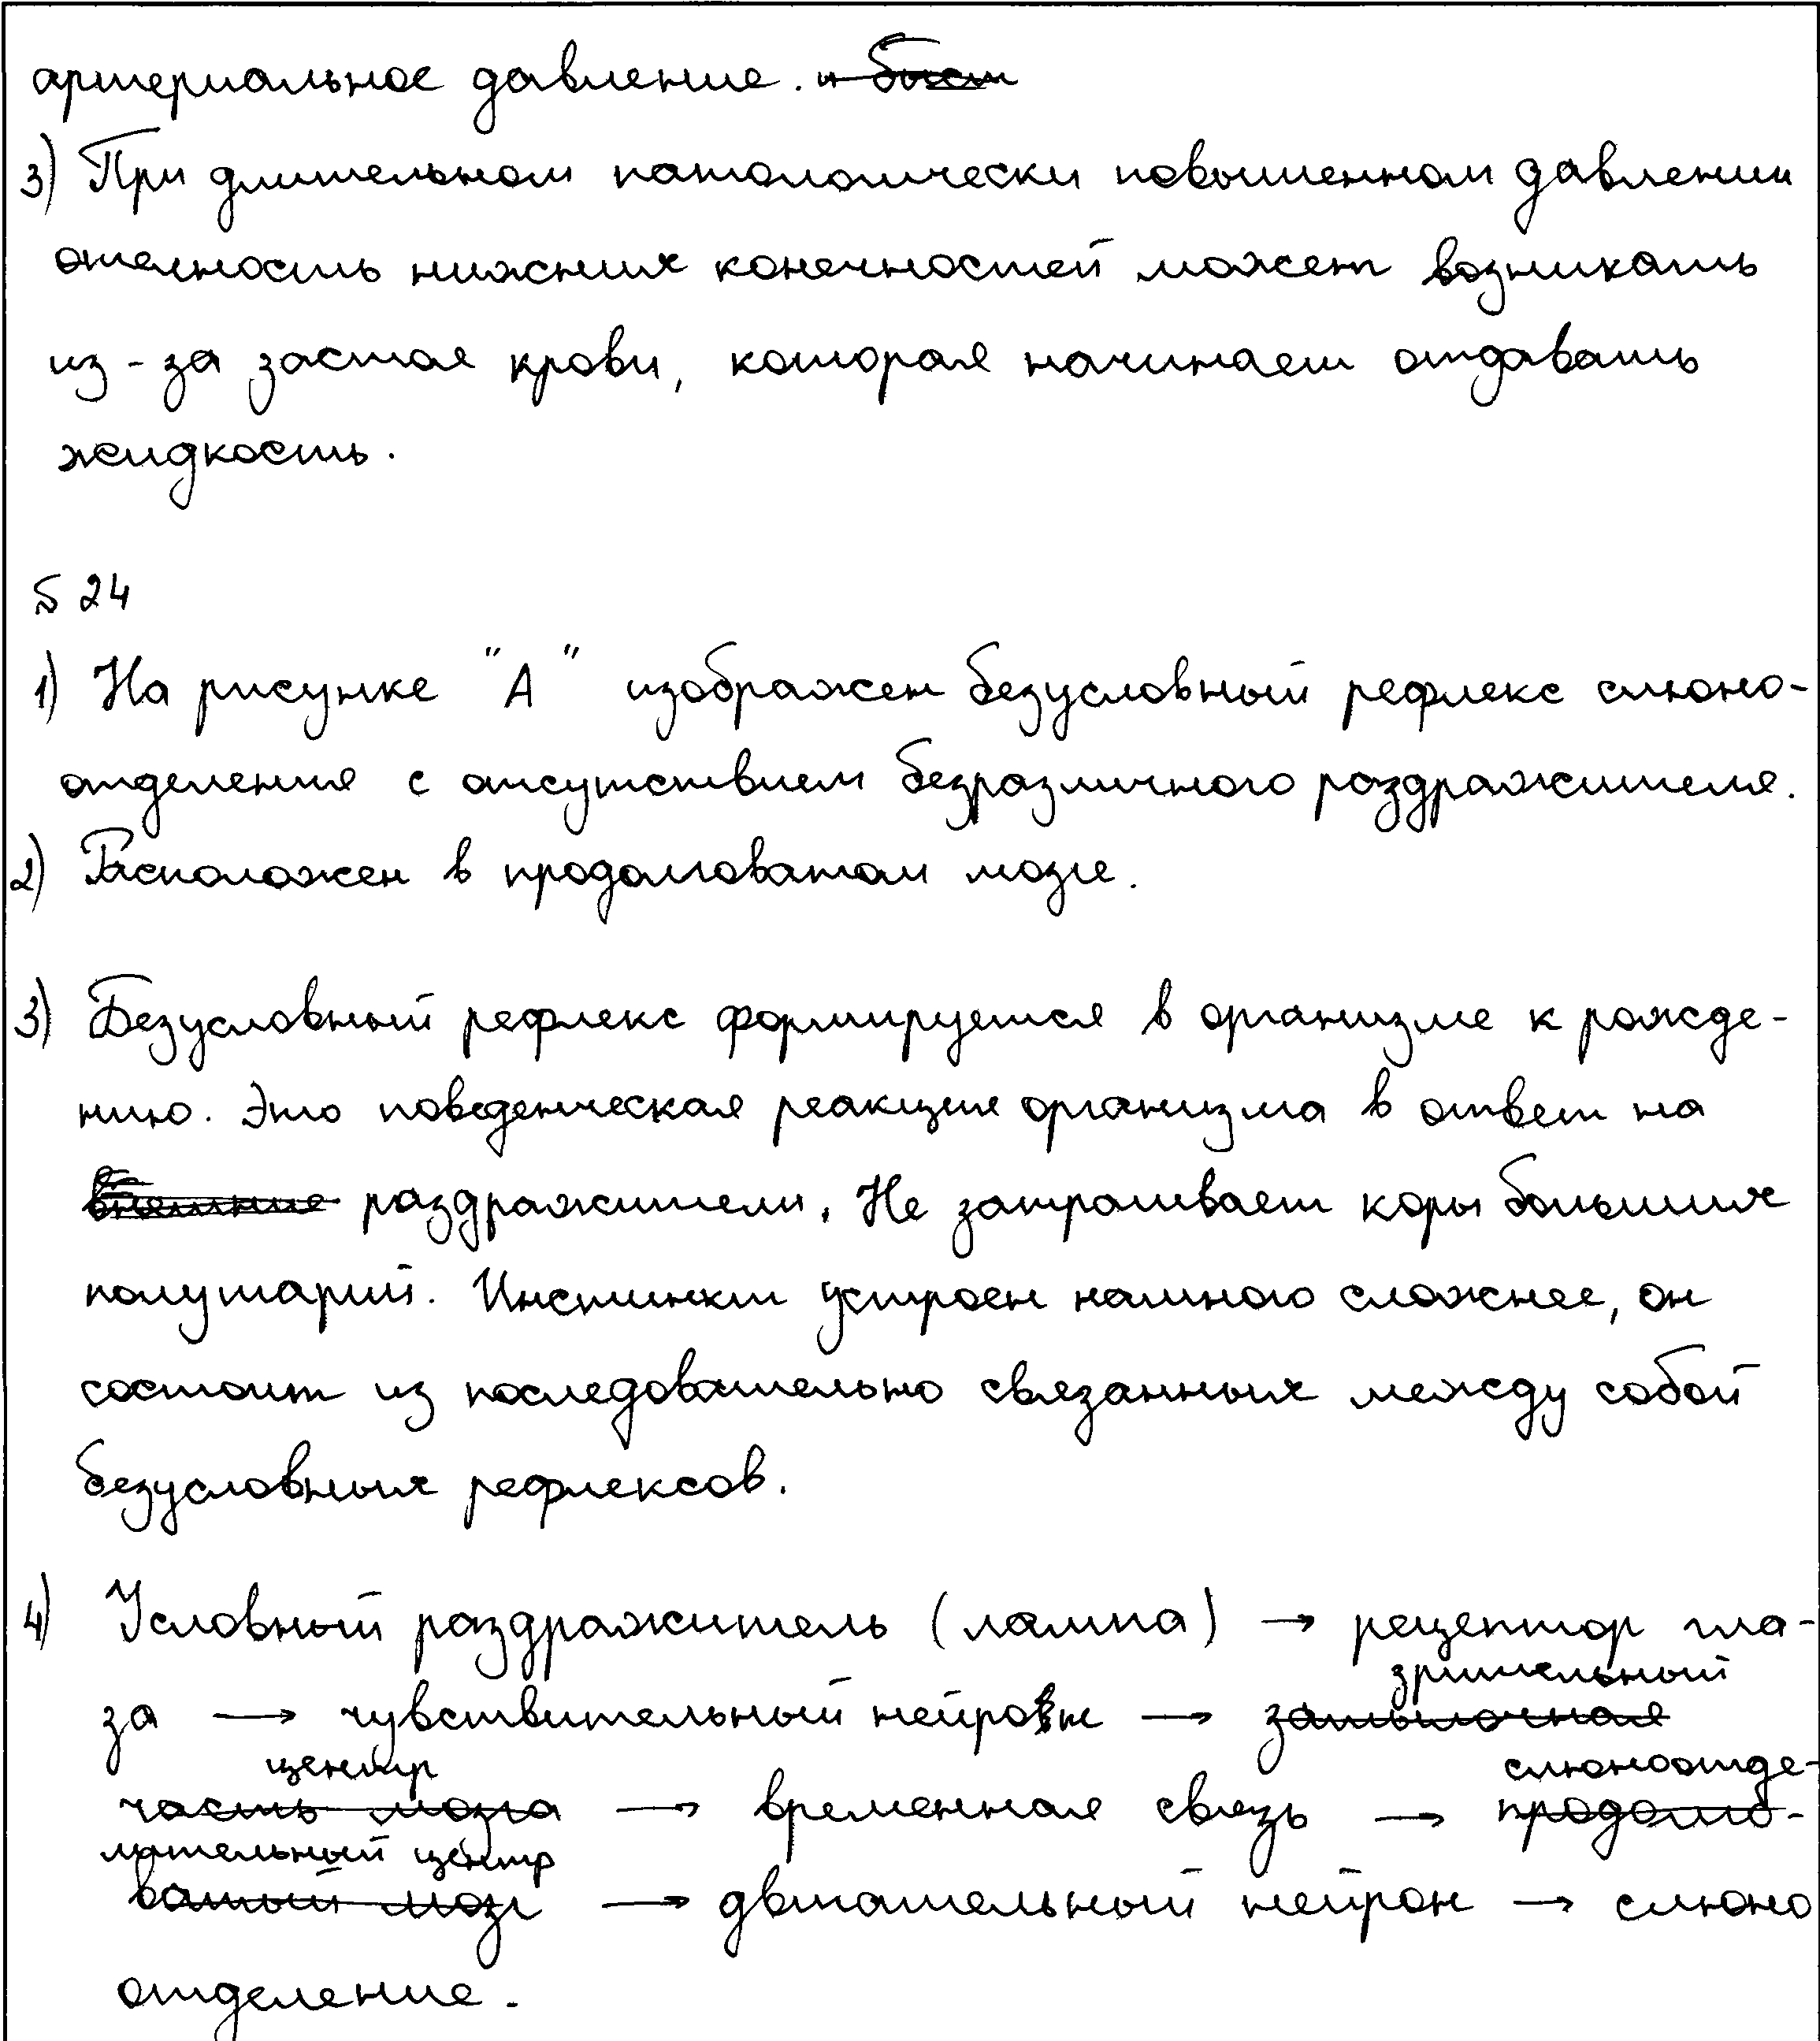 артериальное давление. и быст
3) При длительном патологически повышенном давлении
отечность нижних конечностей может возникать
из-за застоя крови, которая начинает отдавать
жидкость.
№ 24
1) На рисунке "А" изображен безусловный рефлекс слюно-
отделения с отсутствием безразличного раздражителя.
2) Расположен в продолговатом мозге.
3) Безусловный рефлекс формируется в организме к рожде-
нию. Это поведенческая реакция организма в ответ на
внешние раздражители. Не затрагивает коры больших
полушарий. Инстинкт устроен намного сложнее, он
состоит из последовательно связанных между собой
безусловных рефлексов.
4) Условный раздражитель (лампа) → рецептор гла-
зрительный
за → чувствительный нейрон → затылочная
центр слюноотде-
часть мозга → временная связь → продолго-
лительный центр
ватый мозг → двигательный нейрон → слюно
отделение.